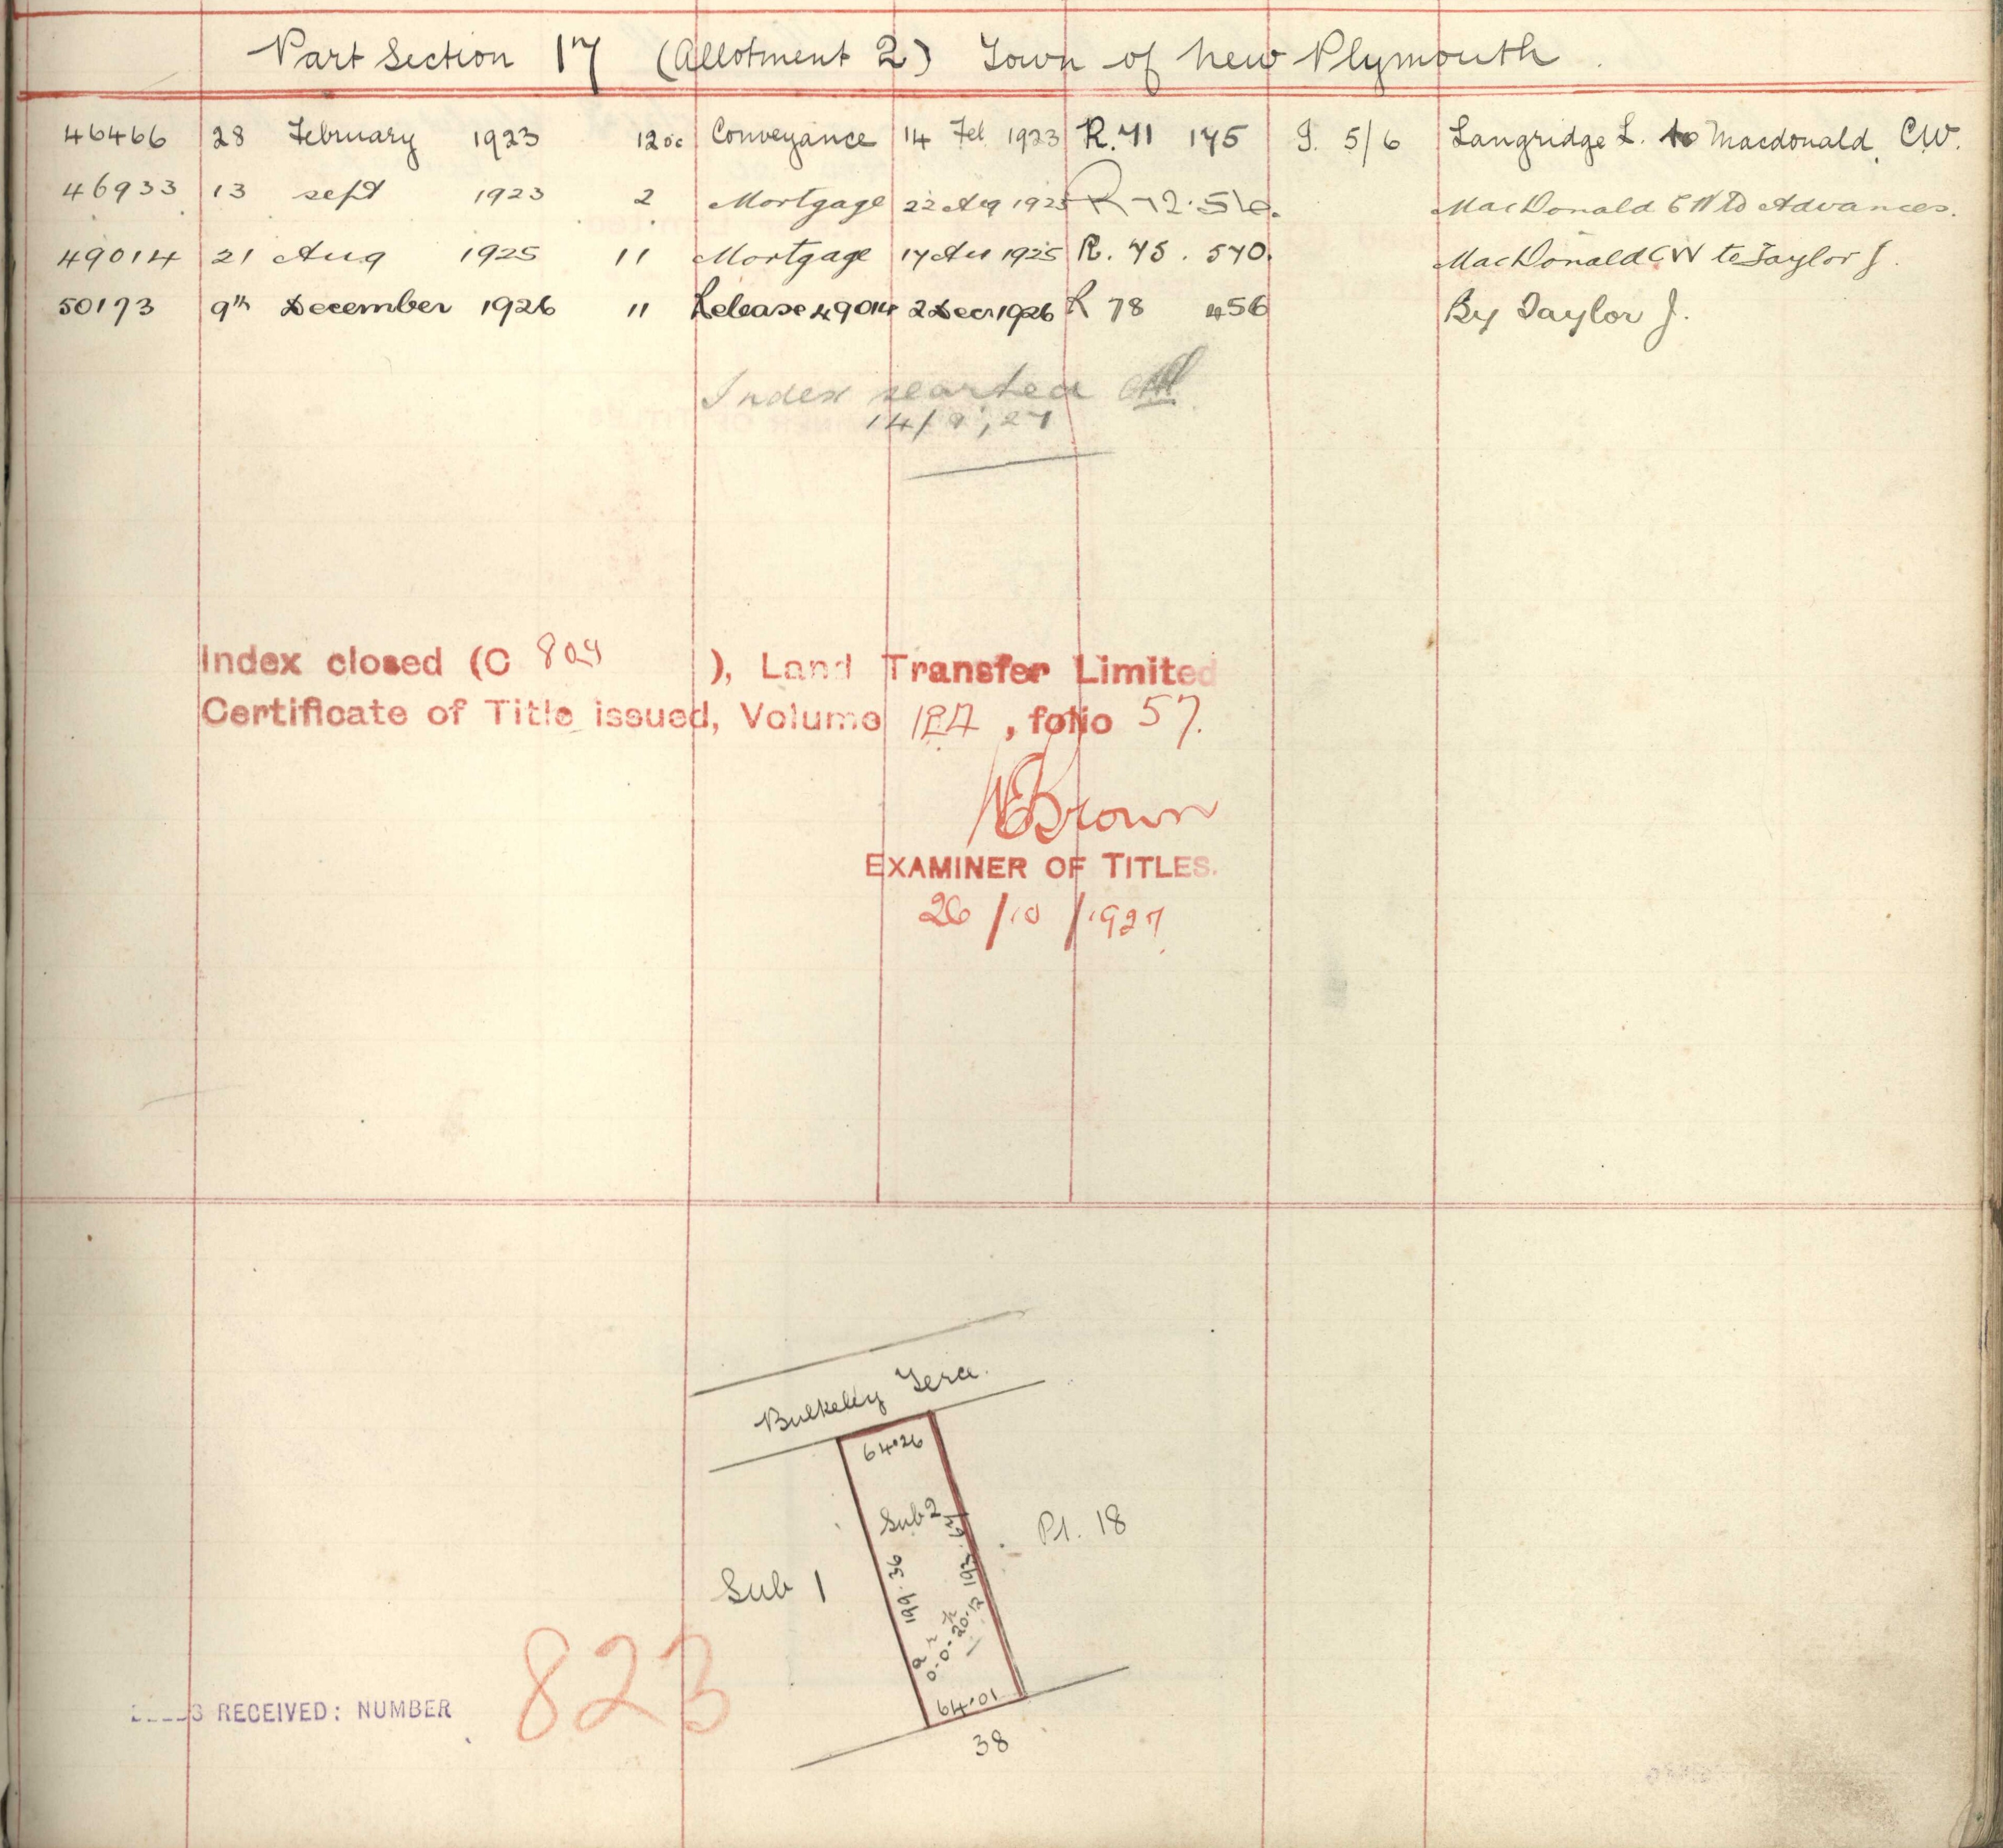 Part Section 17 (Allotment 2) Town of New Plymouth.
46466 28 February 1923 12 oc Conveyance 14 Feb 1923 R. 71 175 I. 5/6 Langridge L. to Macdonald, C.W.
46933 13 sept 1923 2 Mortgage 22 Aug 1923 R 72. MacDonald C W to Advances.
49014 21 Aug 1925 11 Mortgage 17 Au 1925 R. 75. 570. MacDonald C W to Taylor J.
50173 9th December 1926 11 Release 49014 2 Decr 1926 R 78 456 By Taylor J.
Index searched
14/9/27
Index closed (C 804 ), Land Transfer Limited
Certificate of Title issued, Volume , folio 57.
Brown
EXAMINER OF TITLES.
26/10/1927
Bulkeley Terce.
64.26
Sub 2
Pt. 18
Sub 1
199.36
193.67
a r p
0-0-20.12
64.01
38
RECEIVED: NUMBER 823